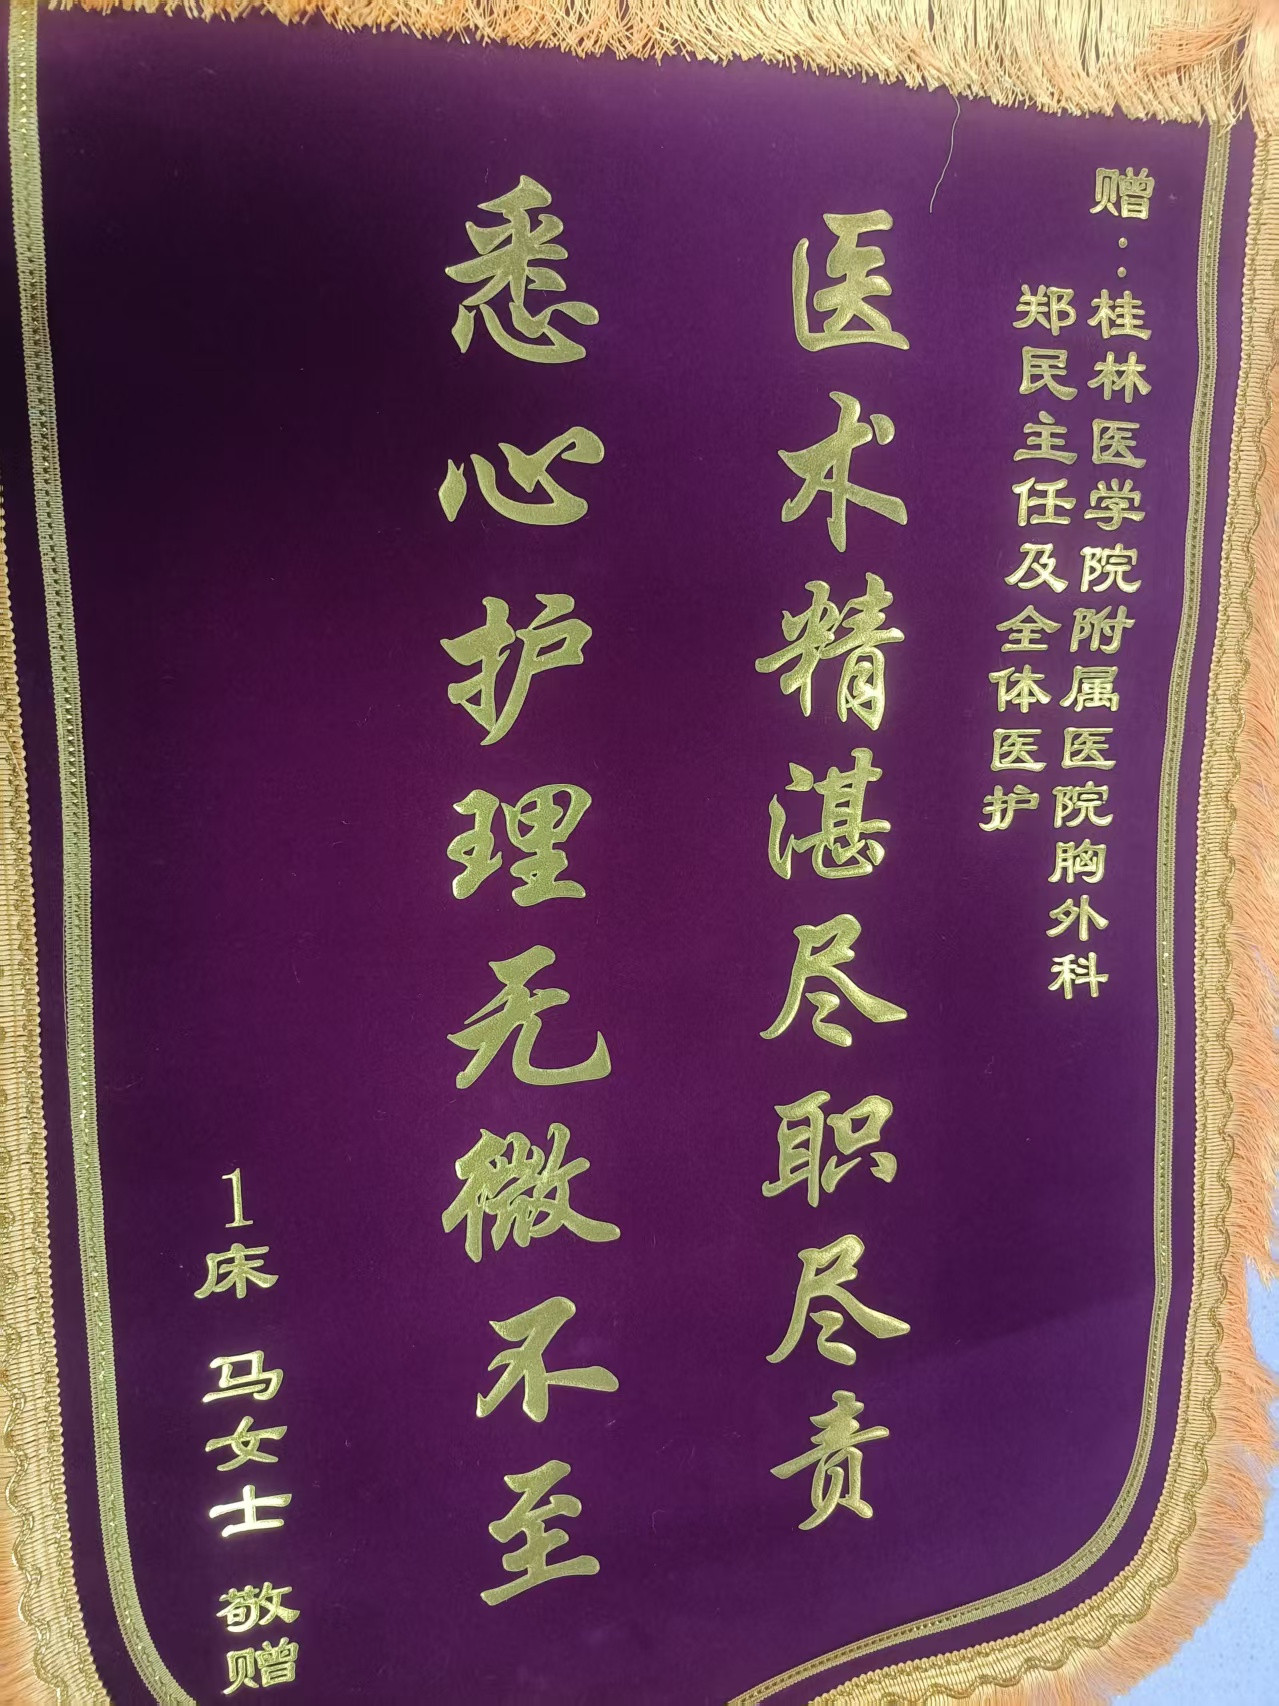 赠：桂林医学院附属医院胸外科
郑民主任及全体医护
医术精湛尽职尽责
悉心护理无微不至
1床 马女士 敬赠